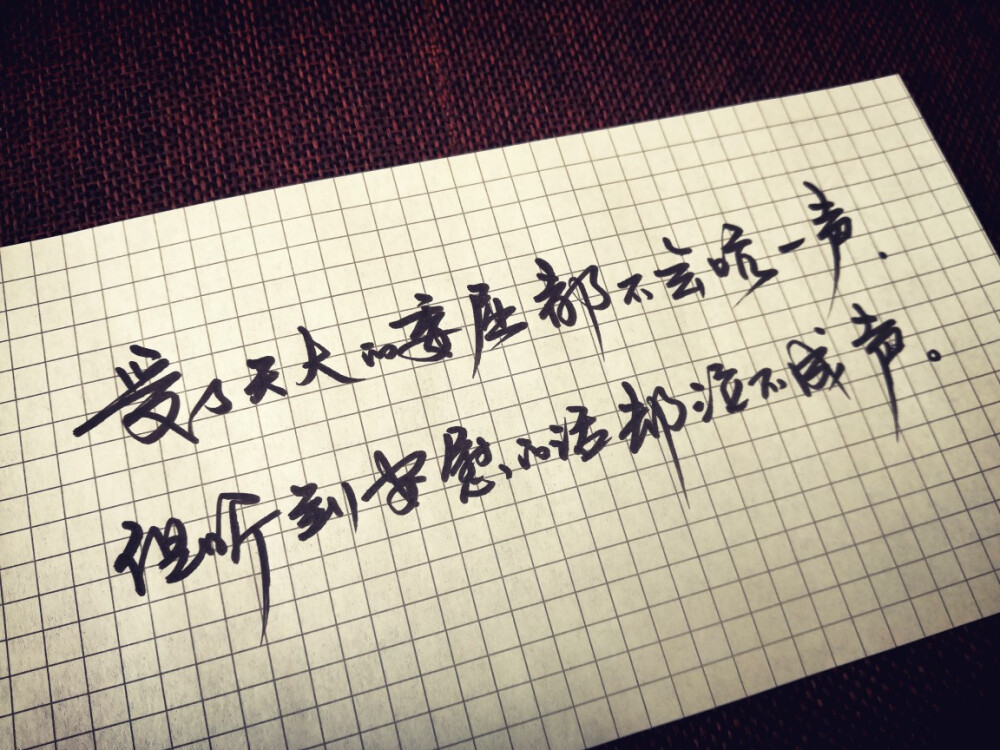 受了天大的委屈都不会吭一声.
但听到安慰的话却泣不成声。